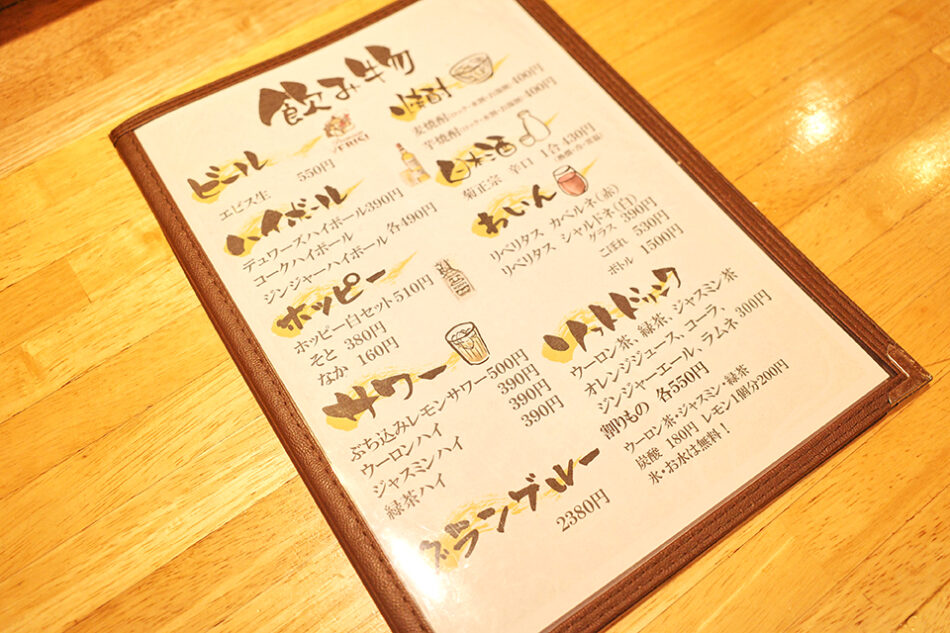 飲み物
ビール
エビス生 550円
ハイボール
デュワーズハイボール390円
コークハイボール
ジンジャーハイボール 各490円
ホッピー
ホッピー白セット510円
そと 380円
なか 160円
サワー
ぶち込みレモンサワー500円
ウーロンハイ 390円
ジャスミンハイ 390円
緑茶ハイ 390円
グランブルー
2380円
焼酎
麦焼酎(ロック・水割・お湯割) 400円
芋焼酎(ロック・水割・お湯割) 400円
日本酒
菊正宗 辛口 1合 430円
(熱燗・冷・常温)
わいん
リベリタス カベルネ(赤)
リベリタス シャルドネ(白)
グラス 390円
こぼれ 530円
ボトル 1500円
ソフトドリンク
ウーロン茶、緑茶、ジャスミン茶
オレンジジュース、コーラ、
ジンジャーエール、ラムネ 300円
割りもの 各550円
ウーロン茶・ジャスミン・緑茶
炭酸 180円 レモン1個分200円
氷・お水は無料!